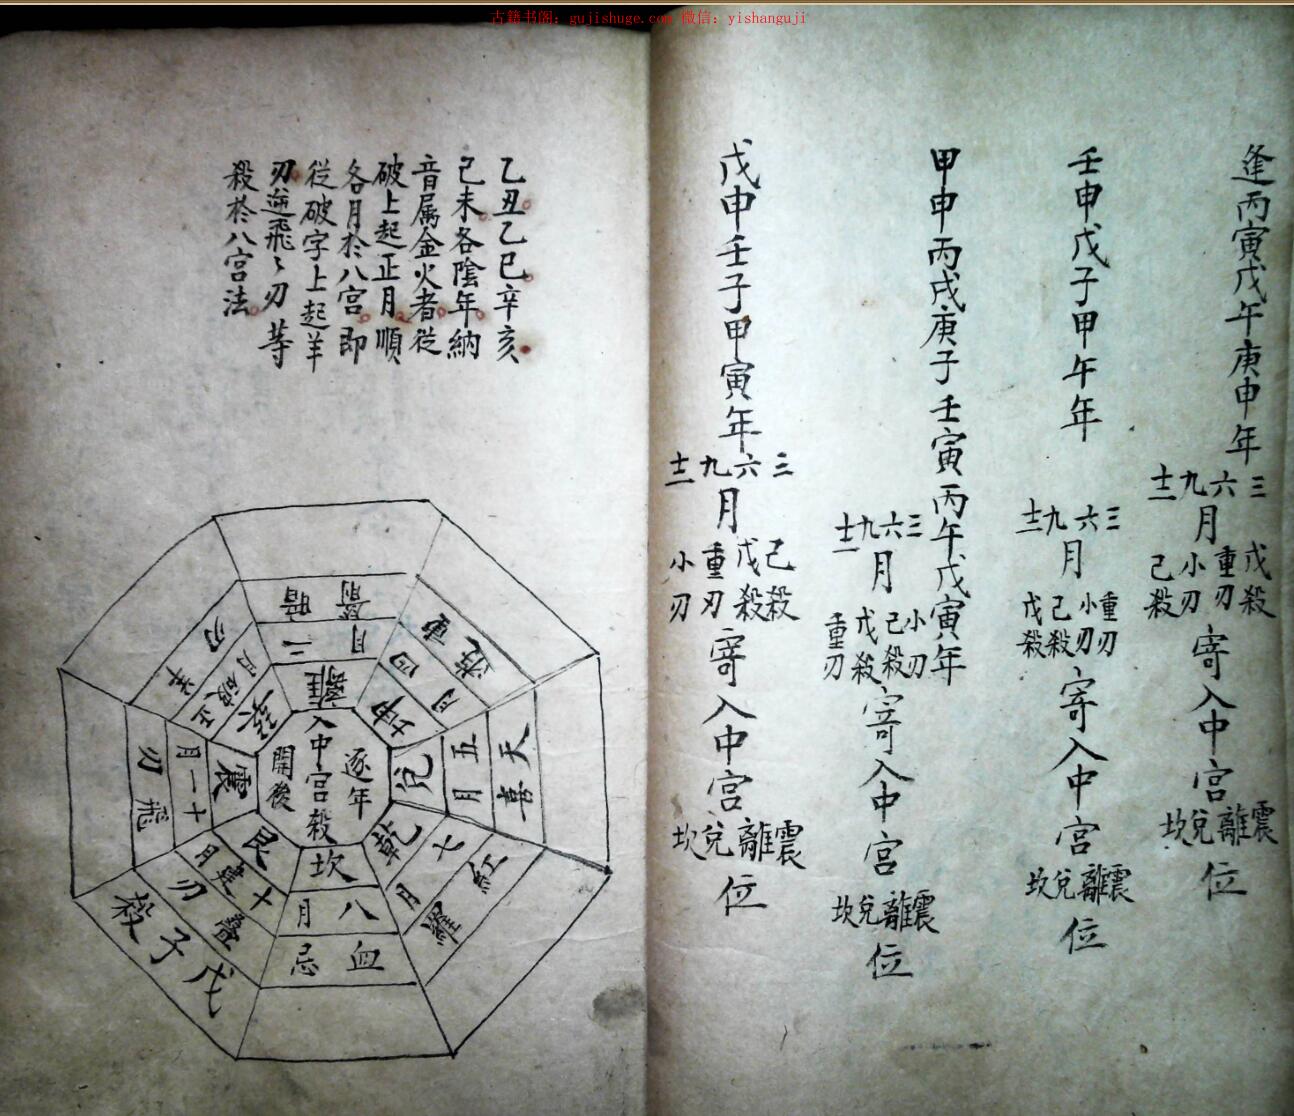 古籍书阁：gujishuge.com 微信：yishanguji
逢丙寅戊午庚申年
三六九十二
月
戊殺重刃小刃己殺
寄入中宮
震離兌坎
位
壬申戊子甲午年
三六九十二
月
重刃小刃己殺戊殺
寄入中宮
震離兌坎
位
甲申丙戌庚子壬寅丙午戊寅年
三六九十二
月
小刃己殺戊殺重刃
寄入中宮
震離兌坎
位
戊申壬子甲寅年
三六九十二
月
己殺戊殺重刃小刃
寄入中宮
震離兌坎
位
乙丑乙巳辛亥
己未各陰年納
音属金火者從
破上起正月順
各月於八宮即
從破字上起羊
刃逆飛〻刃等
殺於八宮法
逐年
入中宮殺
開後
離
二月
暗箭
坤
四月
重遊
兌
五月
天喜
乾
七月
紅羅
坎
八月
血忌
艮
十月建
疊刃
戊子殺
震
十一月
飛刃
巽
正破
羊刃